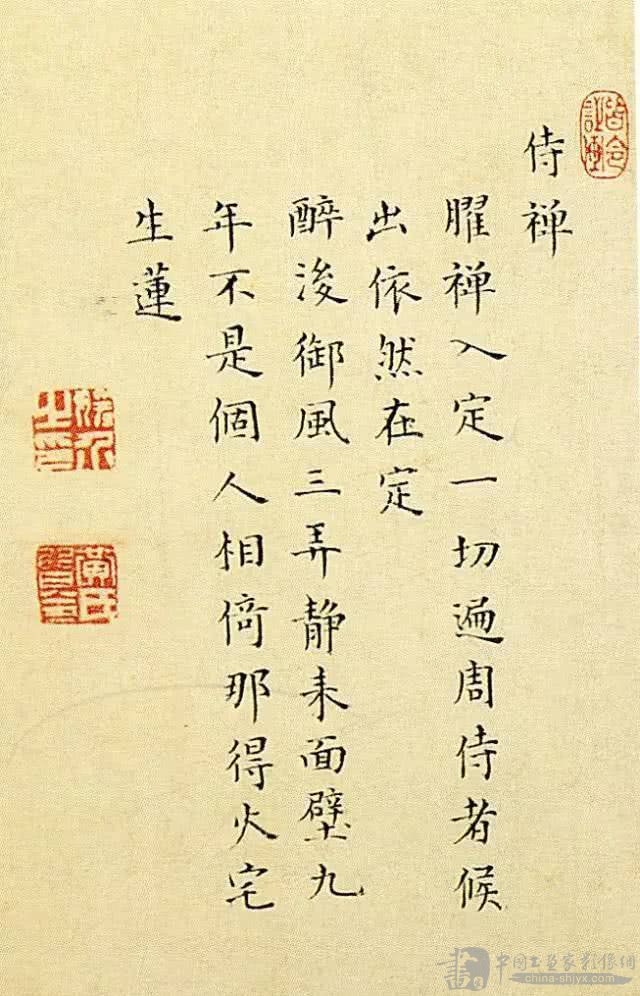 侍禅
臞禅入定一切遍周侍者候
出依然在定
醉後御風三弄静来面壁九
年不是個人相倚那得火宅
生蓮
書 中國書画家影像網
china-shjyx.com